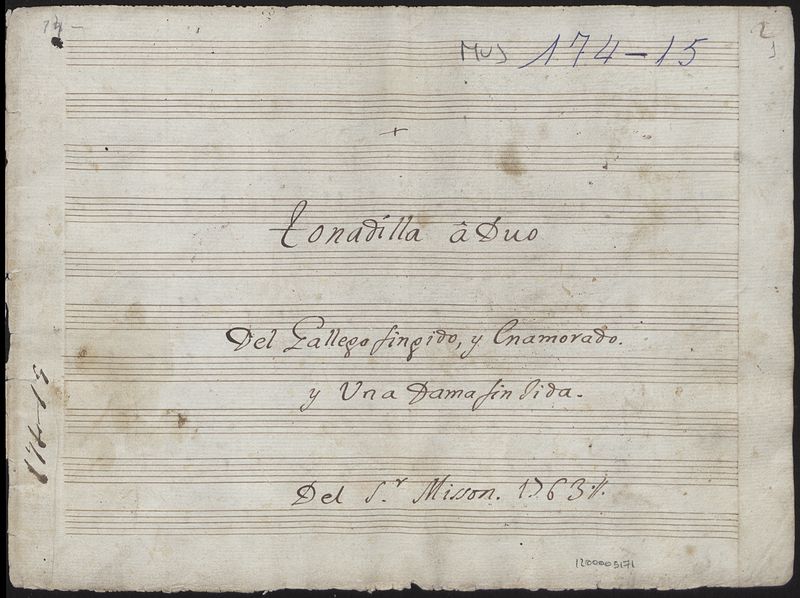 MUS 174-15
+
tonadilla â Duo
Del Gallego fingido, y Enamorado.
y Una Dama
Del S.r Misson. 1763
174-15
1200005171